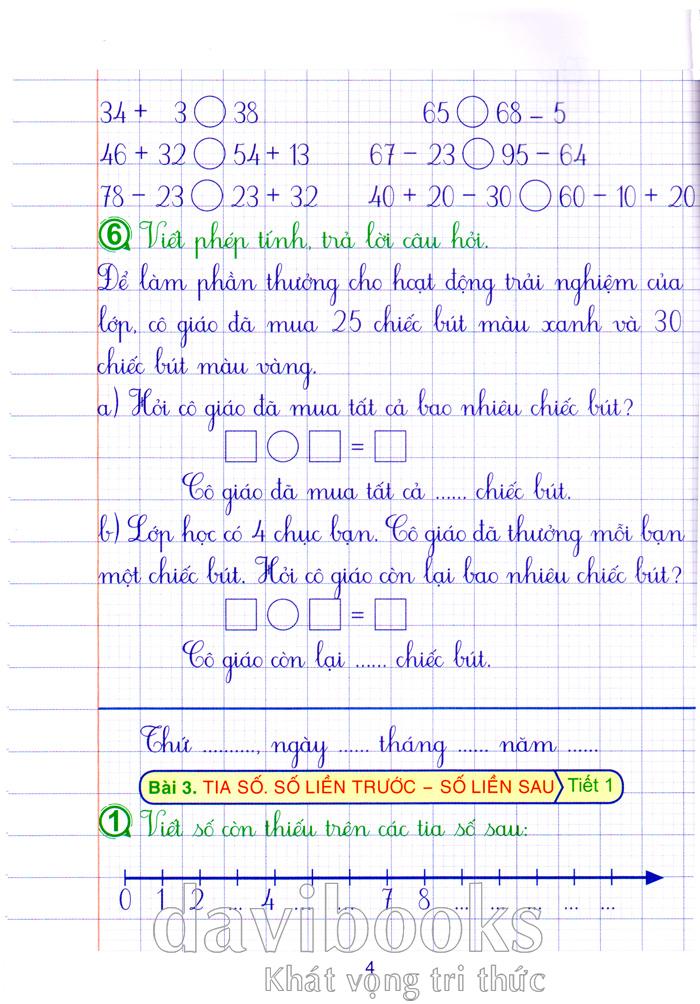 34 + 3 ○ 38 65 ○ 68 – 5
46 + 32 ○ 54 + 13 67 – 23 ○ 95 – 64
78 – 23 ○ 23 + 32 40 + 20 – 30 ○ 60 – 10 + 20
6 Viết phép tính, trả lời câu hỏi.
Để làm phần thưởng cho hoạt động trải nghiệm của
lớp, cô giáo đã mua 25 chiếc bút màu xanh và 30
chiếc bút màu vàng.
a) Hỏi cô giáo đã mua tất cả bao nhiêu chiếc bút?
□ ○ □ = □
Cô giáo đã mua tất cả ...... chiếc bút.
b) Lớp học có 4 chục bạn. Cô giáo đã thưởng mỗi bạn
một chiếc bút. Hỏi cô giáo còn lại bao nhiêu chiếc bút?
□ ○ □ = □
Cô giáo còn lại ...... chiếc bút.
Thứ .........., ngày ...... tháng ...... năm ......
Bài 3. TIA SỐ. SỐ LIỀN TRƯỚC – SỐ LIỀN SAU Tiết 1
1 Viết số còn thiếu trên các tia số sau:
0 1 2 ... 4 ... ... 7 8 ... ... ... ... ...
davibooks
4
Khát vọng tri thức